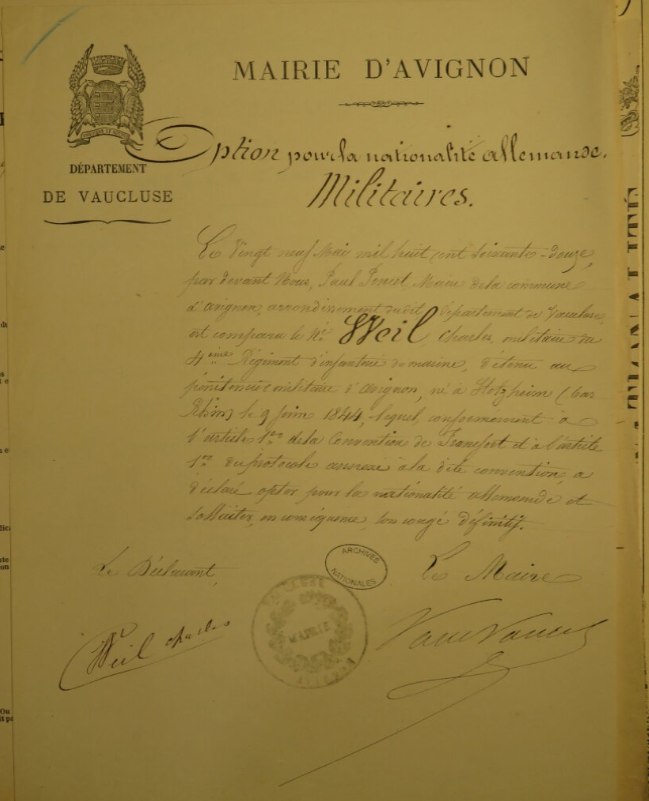 MAIRIE D'AVIGNON
DÉPARTEMENT
DE VAUCLUSE
Option pour la nationalité allemande.
Militaires.
Le Vingt neuf Mai mil huit cent soixante-douze,
par devant Nous, Paul Maire de la commune
d'avignon, arrondissement dudit, département de Vaucluse,
est comparu le Né Weil Charles, militaire au
4ème Régiment d'infanterie de marine, détenu au
pénitencier militaire d'avignon, né à Holzheim (bas
Rhin) le 9 juin 1844, lequel, conformément à
l'article 1er de la Convention de Francfort et à l'article
1er du protocole annexé à la dite convention, a
déclaré opter pour la nationalité allemande et
solliciter, en conséquence, son congé définitif.
Le Déclarant,
Le Maire
ARCHIVES
NATIONALES
VAUCLUSE
Weil charles